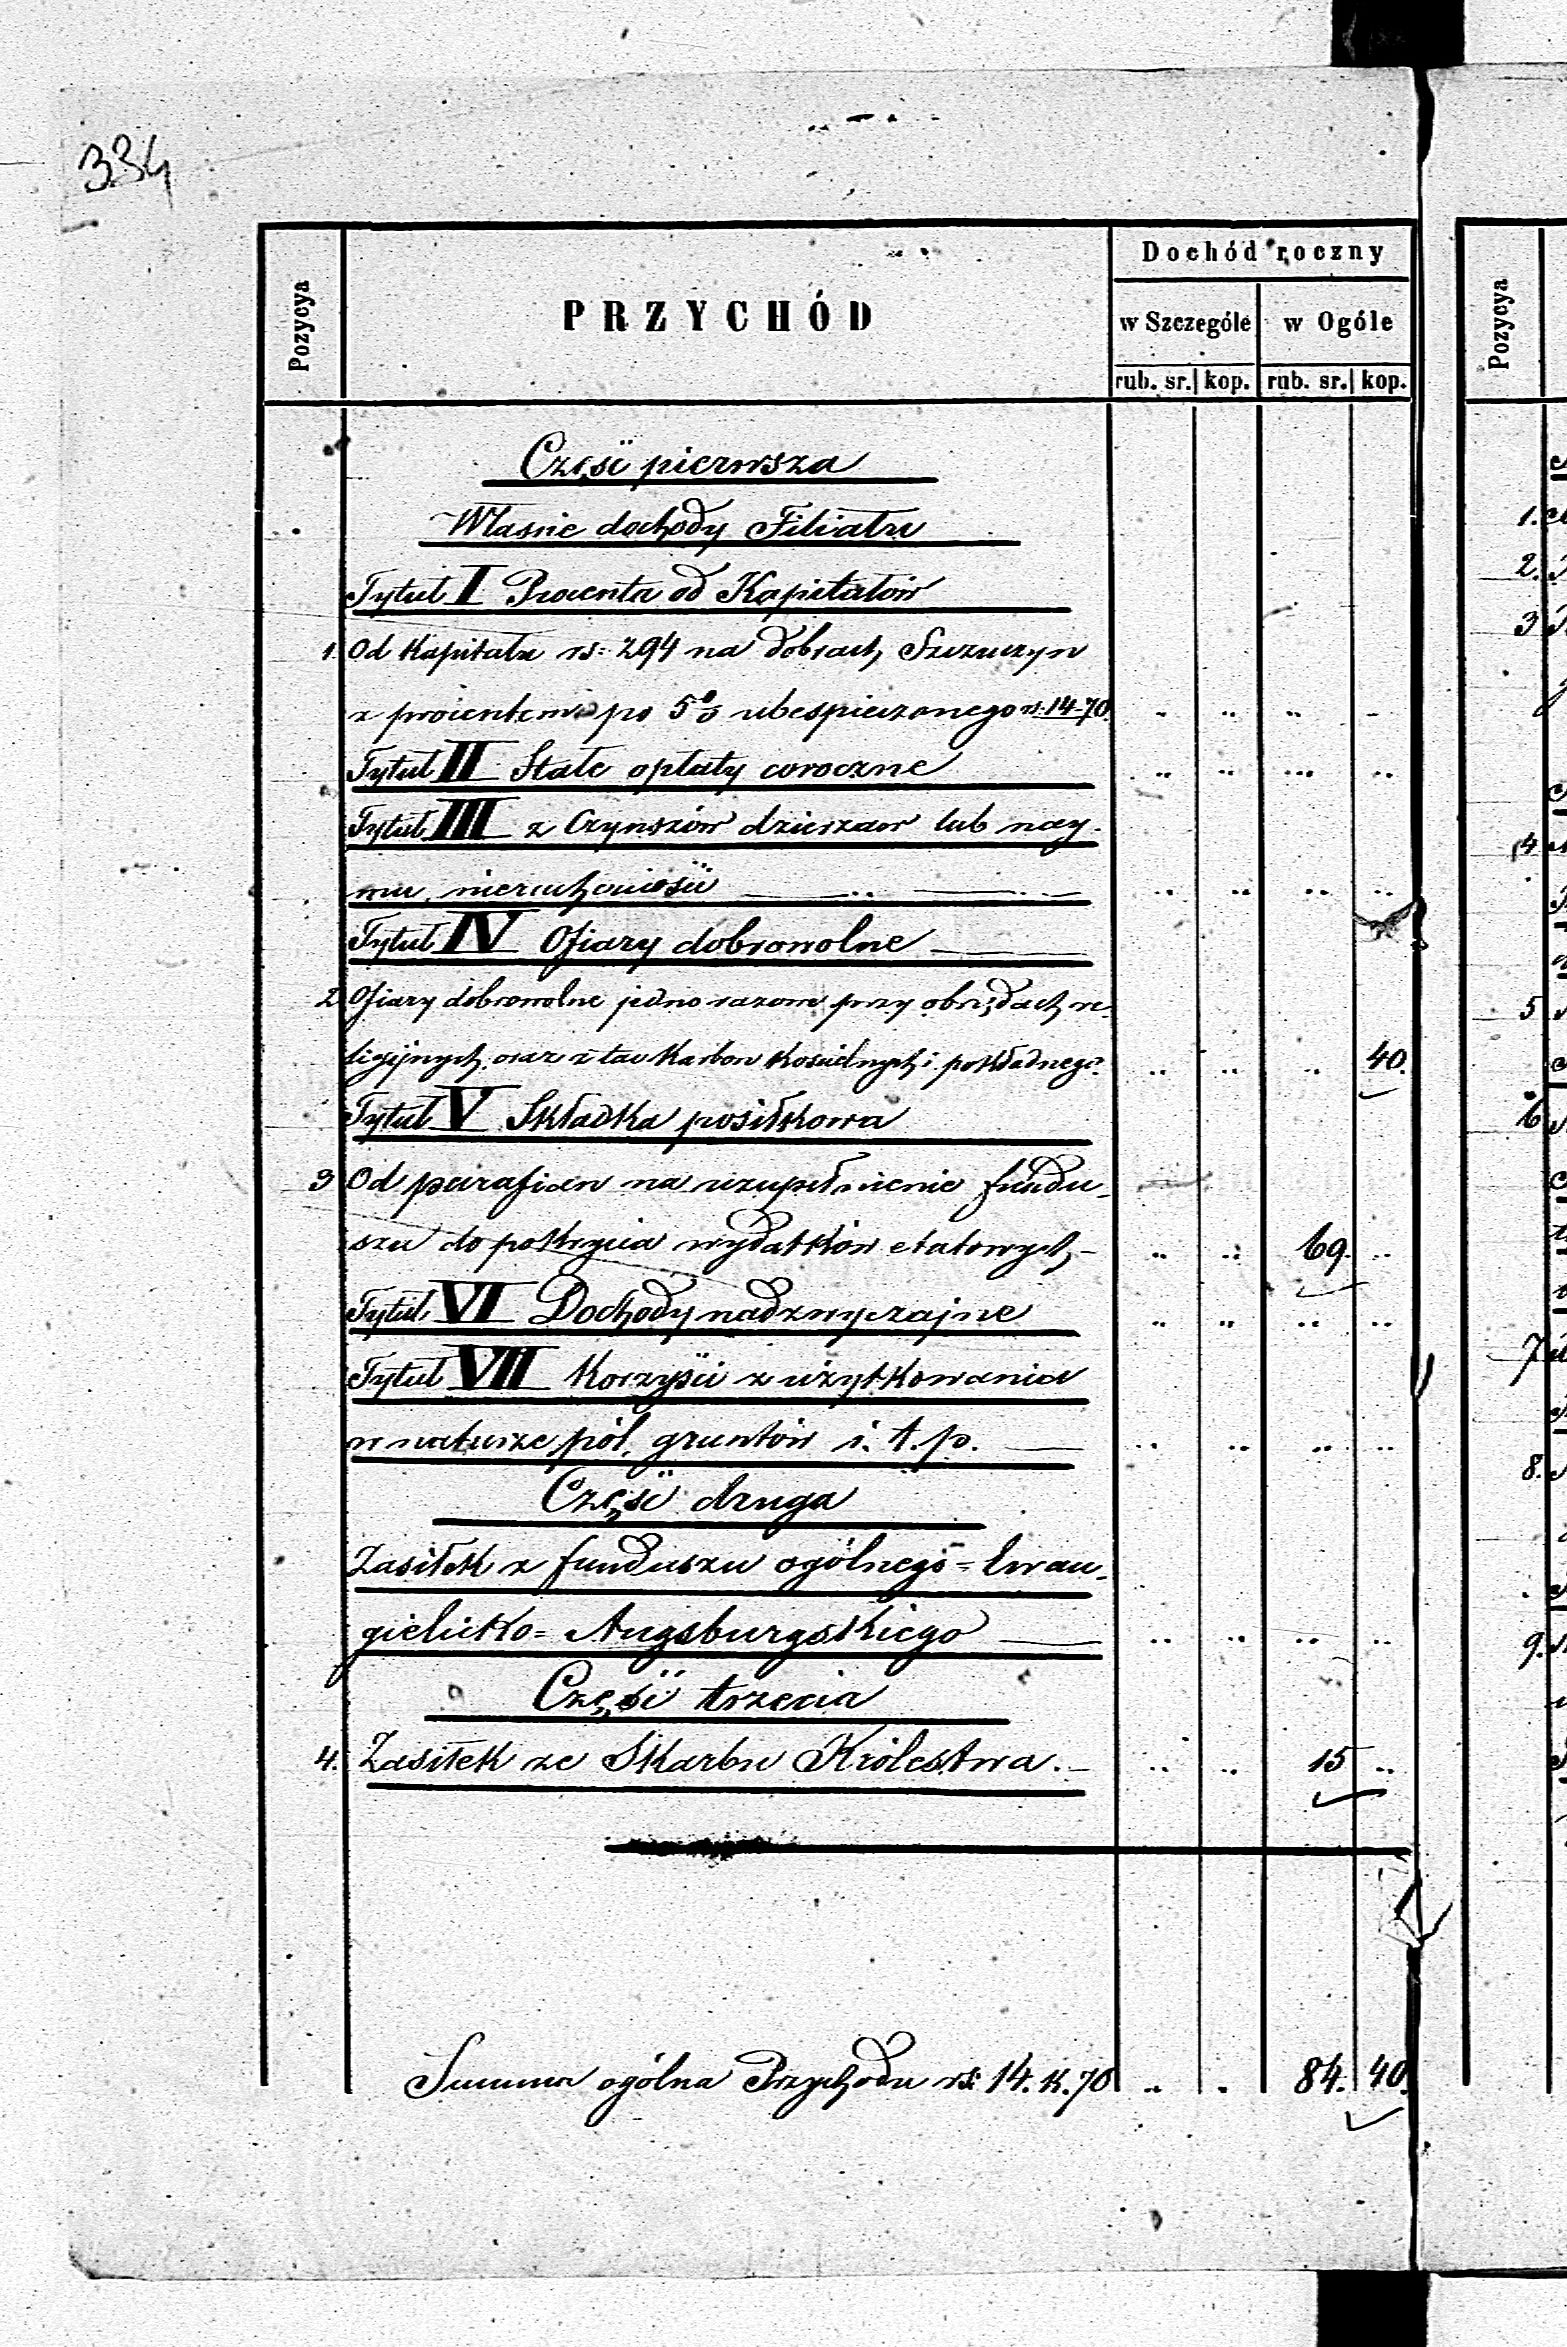 334
Dochód roczny
Pozycya PRZYCHÓD w Szczególe w Ogóle Pozycya
rub. sr. kop. rub. sr. kop.
Część pierwsza
Własne dochody Filiału
Tytuł I Procenta od Kapitałów
1 Od Kapitału rs: 294 na dobrach Szczuczyn
z procentem po 5% ubespieczonego rs. 14-70.
Tytuł II Stałe opłaty coroczne
Tytuł III z Czynszów dzierzaw lub nay-
mu nieruchomości
Tytuł IV Ofiary dobrowolne
2 Ofiary dobrowolne jedno razowe przy obrzędach re-
ligijnych oraz z tac Karbon Kościelnych i pokładnego 40.
Tytuł V Składka posiłkowa
3 Od parafian na uzupełnienie fundu-
szu do pokrycia wydatków etatowych 69.
Tytuł VI Dochody nadzwyczajne
Tytuł VII Korzyści z użytkowania
w naturze pól, gruntów i. t. p.
Część druga
Zasiłek z funduszu ogólnego = Ewan-
gielicko = Augsburgskiego
Część trzecia
4. Zasiłek ze Skarbu Królestwa. 15
Summa ogólna Przychodu rs: 14. k. 70 84. 40.
1.
2.
3
4
5
6
7
8.
9.